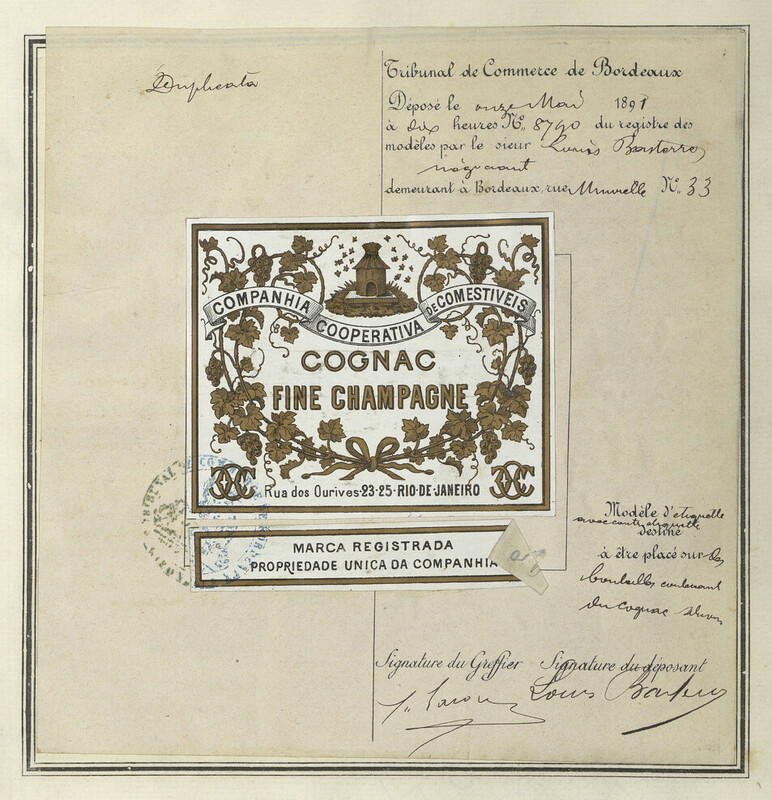 Duplicata
Tribunal de Commerce de Bordeaux
Déposé le onze Mai 1891
à dix heures N° 8790 du registre des
modèles par le sieur Louis
négociant
demeurant à Bordeaux, rue N° 33
COMPANHIA COOPERATIVA DE COMESTIVEIS
COGNAC
FINE CHAMPAGNE
Rua dos Ourives·23·25·RIO·DE·JANEIRO
MARCA REGISTRADA
PROPRIEDADE UNICA DA COMPANHIA
Modèle d'etiquette
avec contre etiquette
destiné
à être placé sur des
bouteilles contenant
du cognac
Signature du Greffier Signature du déposant
Louis